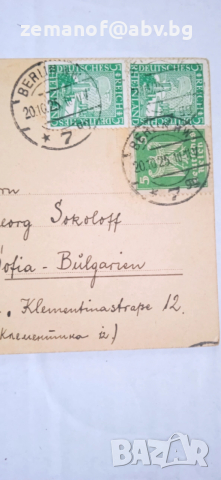 zemanof@abv.bg
BERLIN
DEUTSCHES
REICH
DEUTSCHES
REICH
BERLIN NW
20.10.25
* 7
20.10.25
5
Deutsches
Reich
* 7
rn
eorg Sokoloff
ofia - Bulgarien
. Klementinastrape 12.
(Клементина
БАЗАР
bg